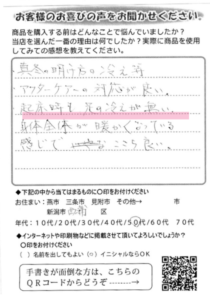 お客様のお喜びの声をお聞かせください。
商品を購入する前はどんなことで悩んでいましたか?
当店を選んだ一番の理由は何でしたか?実際に商品を使用
してみての感想を教えてください。
真冬の明け方の冷え
アフターケアーの対応が良い。
起床時も足の冷えが無い。
身体全体が暖かくなっている
感じで ここち良い。
◆下記の中から当てはまるものに○印をお付けください。
お住まい:燕市 三条市 見附市 その他→ 市
新潟市 区
年代:10代/20代/30代/40代/50代/60代 70代
◆インターネットや印刷物などに掲載させて頂いてよろしいでしょうか?
○印をお付けください
( )名前を出してもよい (○)イニシャルならOK
手書きが面倒な方は、こちらの
QRコードからどうぞ